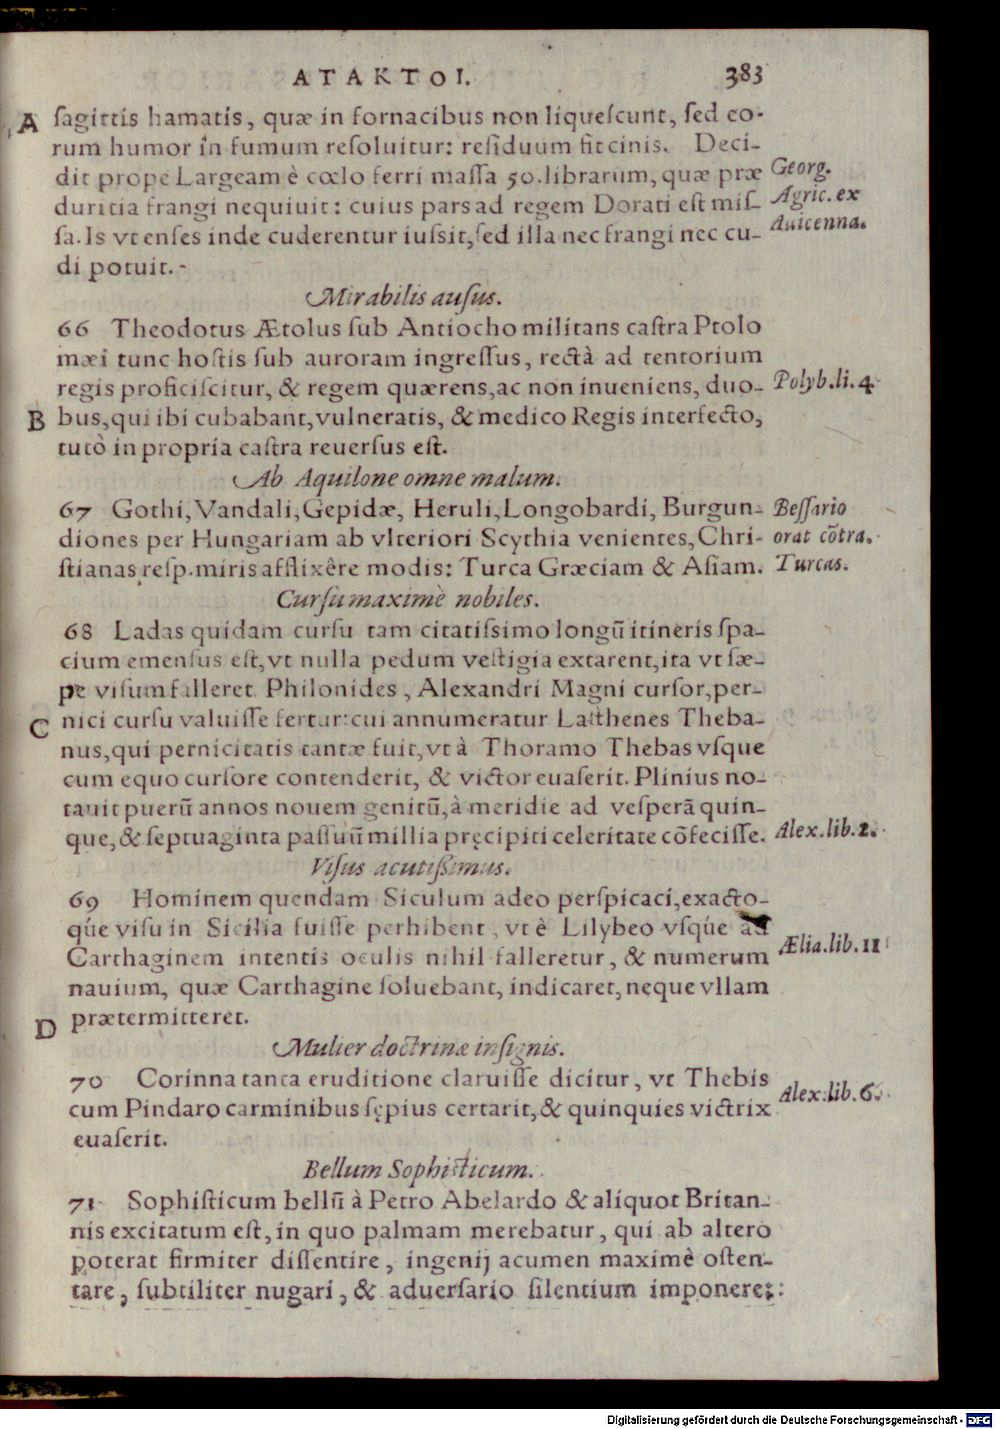 ATAKTOI. 383
A sagittis hamatis, quæ in fornacibus non liquescunt, sed eo-
rum humor in fumum resoluitur: residuum fit cinis. Deci-
dit prope Largeam è cœlo ferri massa 50. librarum, quæ præ Georg.
duritia frangi nequiuit: cuius pars ad regem Dorati est mis- Agric. ex
sa. Is vt enses inde cuderentur iussit, sed illa nec frangi nec cu- Auicenna.
di potuit.
Mirabilis ausus.
66 Theodotus Ætolus sub Antiocho militans castra Ptolo
mæi tunc hostis sub auroram ingressus, rectà ad tentorium
regis proficiscitur, & regem quærens, ac non inueniens, duo- Polyb. li. 4
B bus, qui ibi cubabant, vulneratis, & medico Regis interfecto,
tutò in propria castra reuersus est.
Ab Aquilone omne malum.
67 Gothi, Vandali, Gepidæ, Heruli, Longobardi, Burgun- Bessario
diones per Hungariam ab vlteriori Scythia venientes, Chri- orat cõtra.
stianas resp. miris afflixêre modis: Turca Græciam & Asiam. Turcas.
Cursu maximè nobiles.
68 Ladas quidam cursu tam citatissimo longũ itineris spa-
cium emensus est, vt nulla pedum vestigia extarent, ita vt sæ-
pe visum falleret Philonides, Alexandri Magni cursor, per-
C nici cursu valuisse fertur: cui annumeratur Lasthenes Theba-
nus, qui pernicitatis tantæ fuit, vt à Thoramo Thebas vsque
cum equo cursore contenderit, & victor euaserit. Plinius no-
tauit puerũ annos nouem genitũ, à meridie ad vesperã quin-
que, & septuaginta passuũ millia pręcipiti celeritate cõfecisse. Alex. lib. 2.
Visus acutißimus.
69 Hominem quendam Siculum adeo perspicaci, exacto-
q́ue visu in Sicilia fuisse perhibent, vt è Lilybeo vsq́ue ad
Carthaginem intentis oculis nihil falleretur, & numerum Ælia. lib. 11
nauium, quæ Carthagine soluebant, indicaret, neque vllam
D prætermitteret.
Mulier doctrinæ insignis.
70 Corinna tanta eruditione claruisse dicitur, vt Thebis
cum Pindaro carminibus sępius certarit, & quinquies victrix Alex. lib. 6.
euaserit.
Bellum Sophisticum.
71 Sophisticum bellũ à Petro Abelardo & aliquot Britan-
nis excitatum est, in quo palmam merebatur, qui ab altero
poterat firmiter dissentire, ingenij acumen maximè osten-
tare, subtiliter nugari, & aduersario silentium imponere:
Digitalisierung gefördert durch die Deutsche Forschungsgemeinschaft - DFG